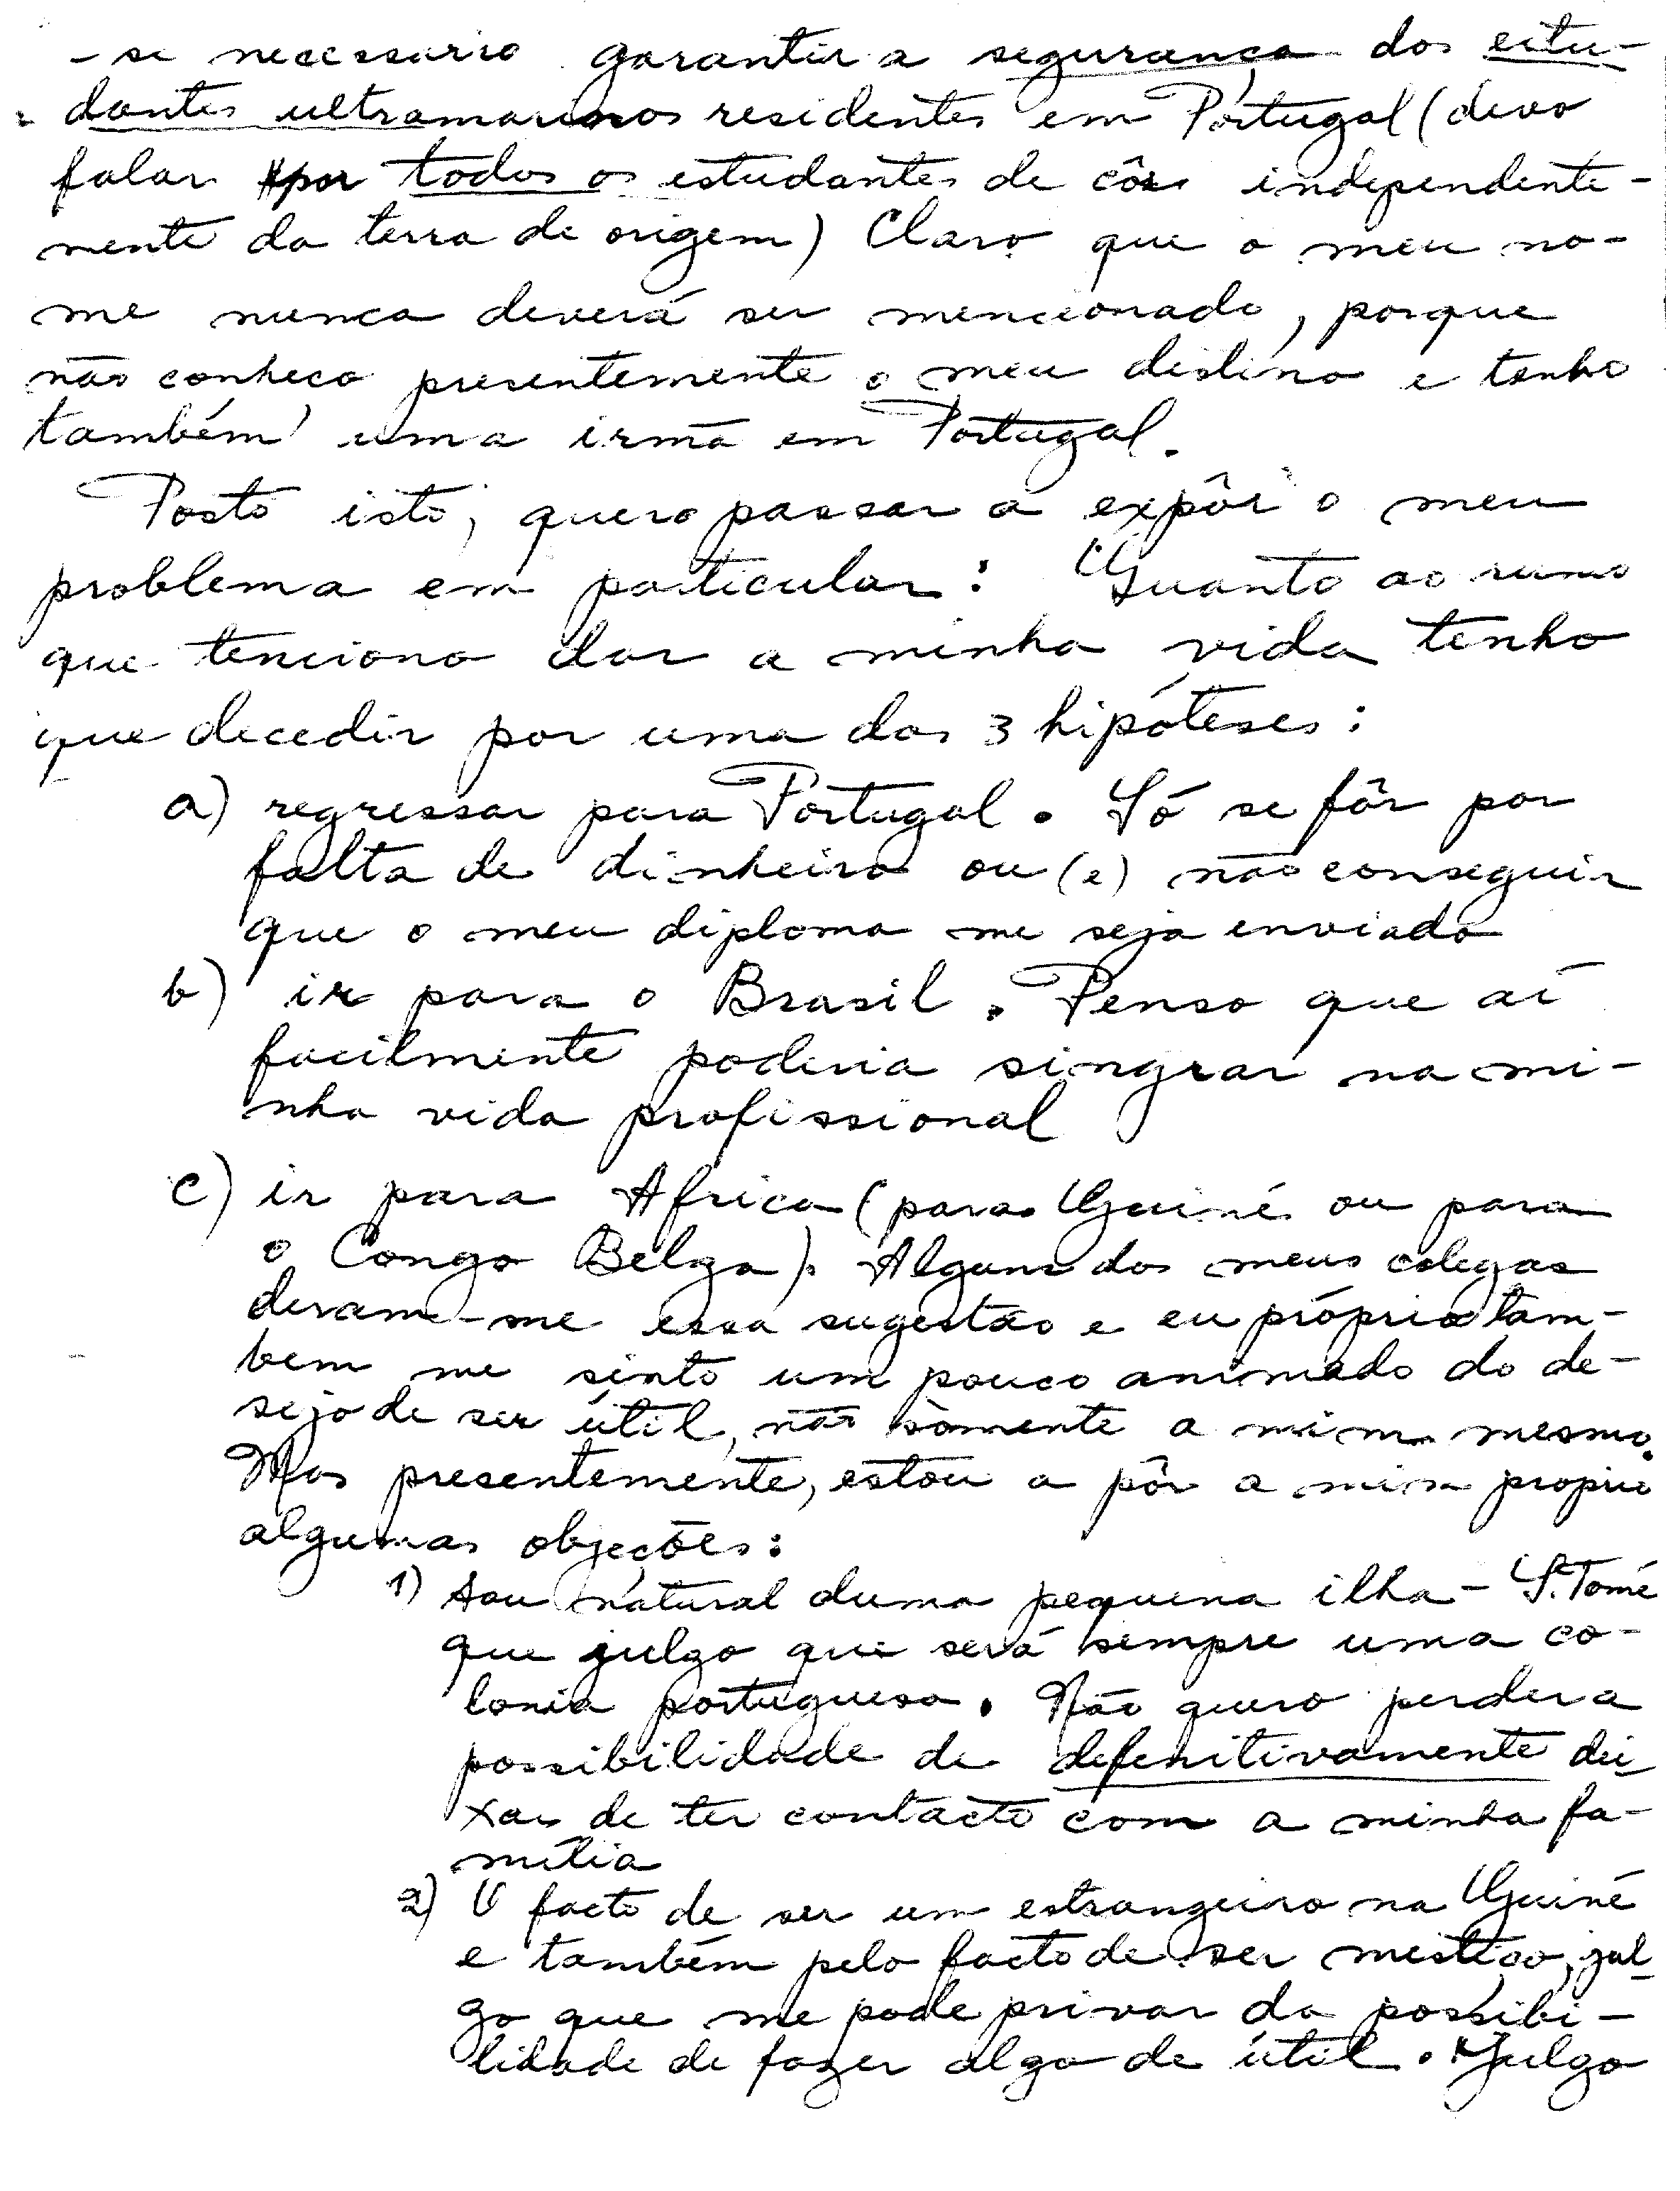 -se necessário garantir a segurança dos estu-
dantes ultramarinos residentes em Portugal (devo
falar por todos os estudantes de côr independente-
mente da terra de origem) Claro que o meu no-
me nunca deverá ser mencionado, porque
não conheço presentemente o meu destino e tenho
também uma irmã em Portugal.
Posto isto, quero passar a expôr o meu
problema em particular: Quanto ao rumo
que tenciono dar a minha vida tenho
que decedir por uma das 3 hipóteses:
a) regressar para Portugal. Só se fôr por
falta de dinheiro ou (e) não conseguir
que o meu diploma me seja enviado
b) ir para o Brasil. Penso que aí
facilmente poderia singrar na mi-
nha vida profissional
c) ir para Africa (para Guiné ou para
o Congo Belga). Alguns dos meus colegas
deram-me essa sugestão e eu próprio tam-
bem me sinto um pouco animado do de-
sejo de ser útil, não sòmente a mim mesmo.
Mas presentemente, estou a pôr a mim proprio
algumas objeções:
1) Sou natural duma pequena ilha - S. Tomé
que julgo que será sempre uma co-
lonia portuguesa. Não quero perder a
possibilidade de defenitivamente dei-
xar de ter contacto com a minha fa-
mília
2) O facto de ser um estrangeiro na Guiné
e também pelo facto de ser mestiço, jul-
go que me pode privar da possibi-
lidade de fazer algo de útil. Julgo